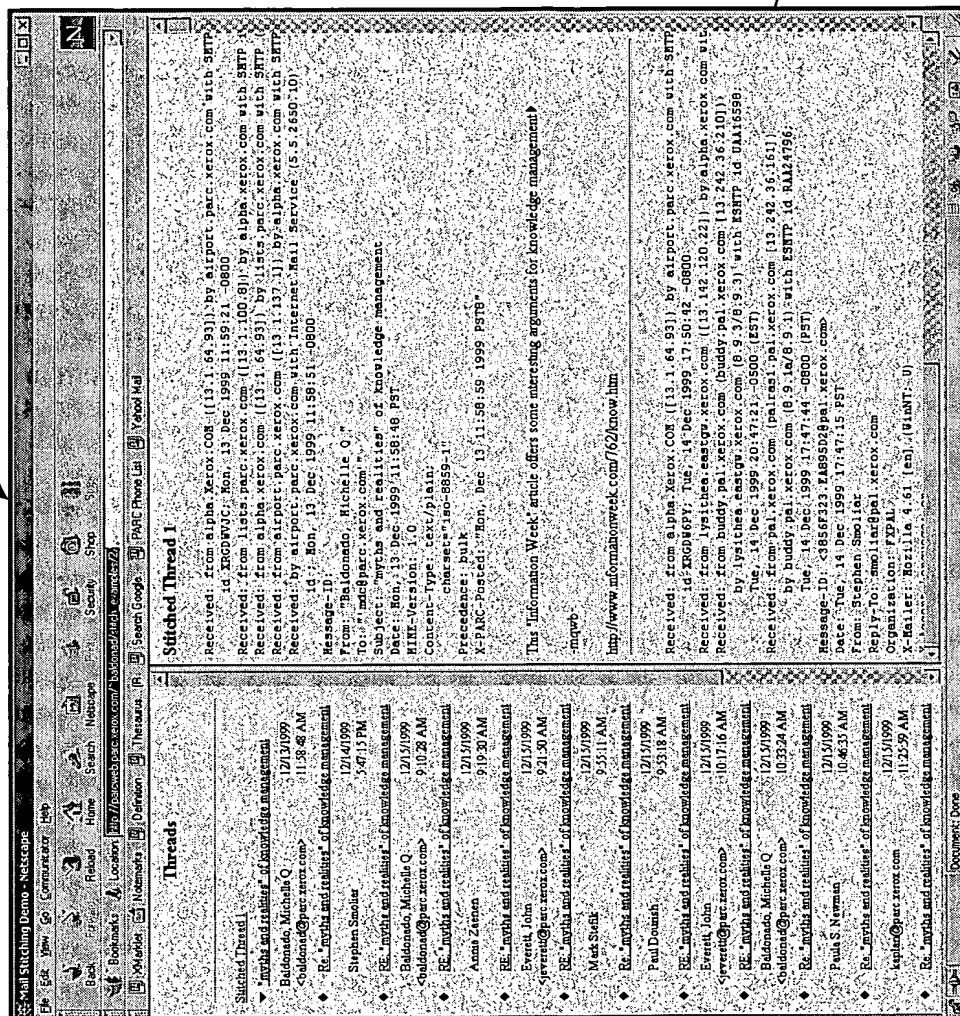 Mail Stitching Demo - Netscape
File Edit View Go Communicator Help
Back Forward Reload Home Search Netscape Print Security Shop Stop
Bookmarks Location
Notemarks Definition Thesaurus Search Google PARC Phone List Yahoo Mail
Threads
Stitched Thread 1
"myths and realities" of knowledge management
Baldonado, Michelle Q 12/13/1999
<baldonad@parc.xerox.com> 11:58:48 AM
Re: "myths and realities" of knowledge management
Stephen Smoliar 12/14/1999
5:47:15 PM
RE: "myths and realities" of knowledge management
Baldonado, Michelle Q 12/15/1999
<baldonad@parc.xerox.com> 9:10:28 AM
Re: "myths and realities" of knowledge management
Annie Zaenen 12/15/1999
9:19:30 AM
RE: "myths and realities" of knowledge management
Everett, John 12/15/1999
<jeverett@parc.xerox.com> 9:21:50 AM
RE: "myths and realities" of knowledge management
Mark Stefik 12/15/1999
9:55:11 AM
Re: "myths and realities" of knowledge management
Paul Dourish 12/15/1999
9:53:18 AM
RE: "myths and realities" of knowledge management
Everett, John 12/15/1999
<jeverett@parc.xerox.com> 10:17:16 AM
RE: "myths and realities" of knowledge management
Baldonado, Michelle Q 12/15/1999
<baldonad@parc.xerox.com> 10:33:24 AM
Re: "myths and realities" of knowledge management
Paula S. Newman 12/15/1999
10:46:55 AM
Re: "myths and realities" of knowledge management
kaplan@parc.xerox.com 12/15/1999
11:25:59 AM
Re: "myths and realities" of knowledge management
Stitched Thread 1
Received: from alpha.Xerox.COM ([13.1.64.93]) by airport.parc.xerox.com with SMTP
id XRGDWVJC; Mon, 13 Dec 1999 11:59:21 -0800
Received: from lists.parc.xerox.com ([13.1.100.8]) by alpha.xerox.com with SMTP
Received: from alpha.xerox.com ([13.1.64.93]) by lists.parc.xerox.com with SMTP
Received: from airport.parc.xerox.com ([13.1.137.1]) by alpha.xerox.com with SMTP
Received: by airport.parc.xerox.com with Internet Mail Service (5.5.2650.10)
id ; Mon, 13 Dec 1999 11:58:51 -0800
Message-ID:
From: "Baldonado, Michelle Q."
To: "'mdc@parc.xerox.com'"
Subject: "myths and realities" of knowledge management
Date: Mon, 13 Dec 1999 11:58:48 PST
MIME-Version: 1.0
Content-Type: text/plain;
charset="iso-8859-1"
Precedence: bulk
X-PARC-Posted: "Mon, Dec 13 11:58:59 1999 PST8"
This "Information Week" article offers some interesting arguments for knowledge management
-mqwb
http://www.informationweek.com/762/know.htm
Received: from alpha.Xerox.COM ([13.1.64.93]) by airport.parc.xerox.com with SMTP
id XRGDW6PY; Tue, 14 Dec 1999 17:50:42 -0800
Received: from lysithea.eastgw.xerox.com ([13.142.120.22]) by alpha.xerox.com wit
Received: from buddy.pal.xerox.com (buddy.pal.xerox.com [13.242.36.210])
by lysithea.eastgw.xerox.com (8.9.3/8.9.3) with ESMTP id UAA16598
Tue, 14 Dec 1999 20:47:21 -0500 (EST)
Received: from pal.xerox.com (palras1.pal.xerox.com [13.242.36.161])
by buddy.pal.xerox.com (8.9.1a/8.9.1) with ESMTP id RAA24796;
Tue, 14 Dec 1999 17:47:44 -0800 (PST)
Message-ID: <3856F323.EA895D2@pal.xerox.com>
Date: Tue, 14 Dec 1999 17:47:15 PST
From: Stephen Smoliar
Reply-To: smoliar@pal.xerox.com
Organization: FXPAL
X-Mailer: Mozilla 4.61 [en] (WinNT; U)
Document: Done